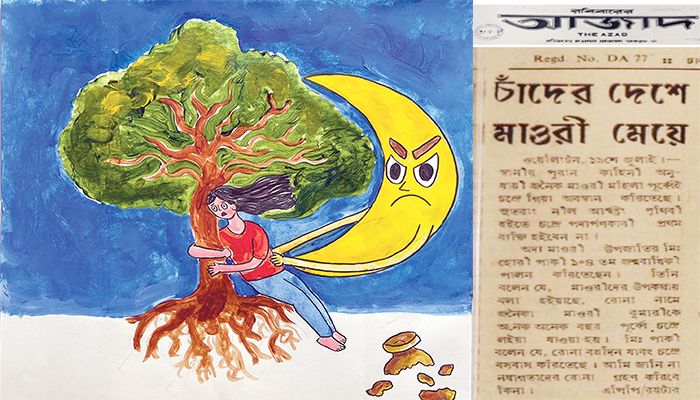 রবিবারের
আজাদ
THE AZAD
Regd. No. DA 77
চাঁদের দেশে
মাওরী মেয়ে
ওয়েলিংটন, ১৯শে জুলাই।—
স্থানীয় পুরান কাহিনী অনু-
যায়ী জনৈক মাওরী মহিলা পূর্বেই
চন্দ্রে গিয়া অবস্থান করিতেছে।
সুতরাং নীল আর্মষ্ট্রং পৃথিবী
হইতে চন্দ্রে পদার্পণকারী প্রথম
ব্যক্তি হইবেন না।
অদ্য মাওরী উপজাতির মিঃ
হোরী পাকী ১০৪ তম জন্মবার্ষিকী
পালন করিতেছেন। তিনি
বলেন যে, মাওরীদের উপকথায়
বলা হইয়াছে, রোনা নামে
জনৈকা মাওরী কুমারীকে
অনেক অনেক বছর পূর্বে চন্দ্রে
লইয়া যাওয়া হয়। মিঃ পাকী
বলেন যে, রোনা বহুদিন যাবৎ চন্দ্রে
বসবাস করিতেছে। আমি জানি না
নবাগতদের রোনা গ্রহণ করিবে
কিনা। এপিপি/রয়টার